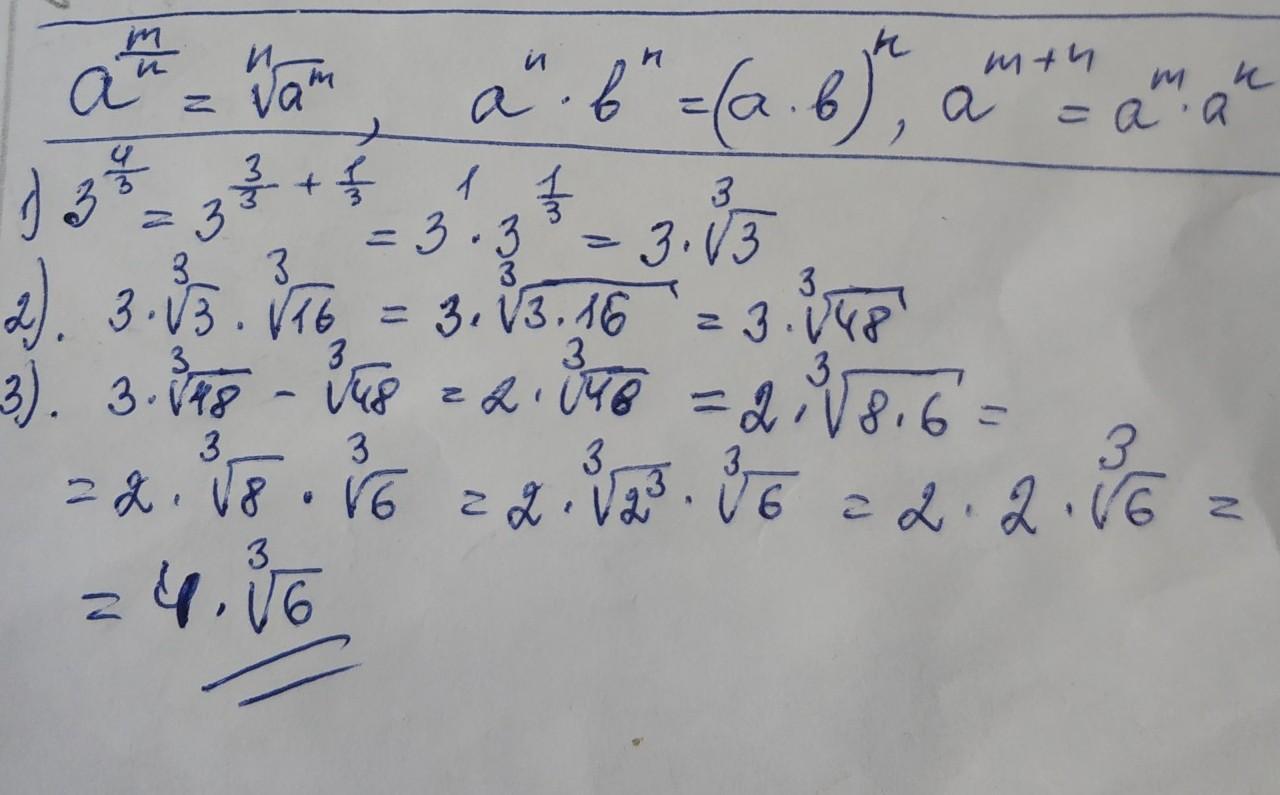 a^(m/n) = ⁿ√(a^m), a^n · b^n = (a · b)^n, a^(m+n) = a^m · a^n
1) 3^(4/3) = 3^(3/3 + 1/3) = 3^1 · 3^(1/3) = 3 · ³√3
2). 3 · ³√3 · ³√16 = 3 · ³√(3 · 16) = 3 · ³√48
3). 3 · ³√48 - ³√48 = 2 · ³√48 = 2 · ³√(8 · 6) =
= 2 · ³√8 · ³√6 = 2 · ³√(2^3) · ³√6 = 2 · 2 · ³√6 =
= 4 · ³√6